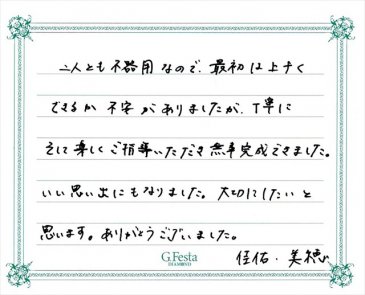 二人とも不器用なので、最初は上手く
できるか不安がありましたが、丁寧に
そして楽しくご指導いただき無事完成できました。
いい思い出にもなりました。大切にしたいと
思います。ありがとうございました。
G.Festa
DIAMOND
佳佑・美穂